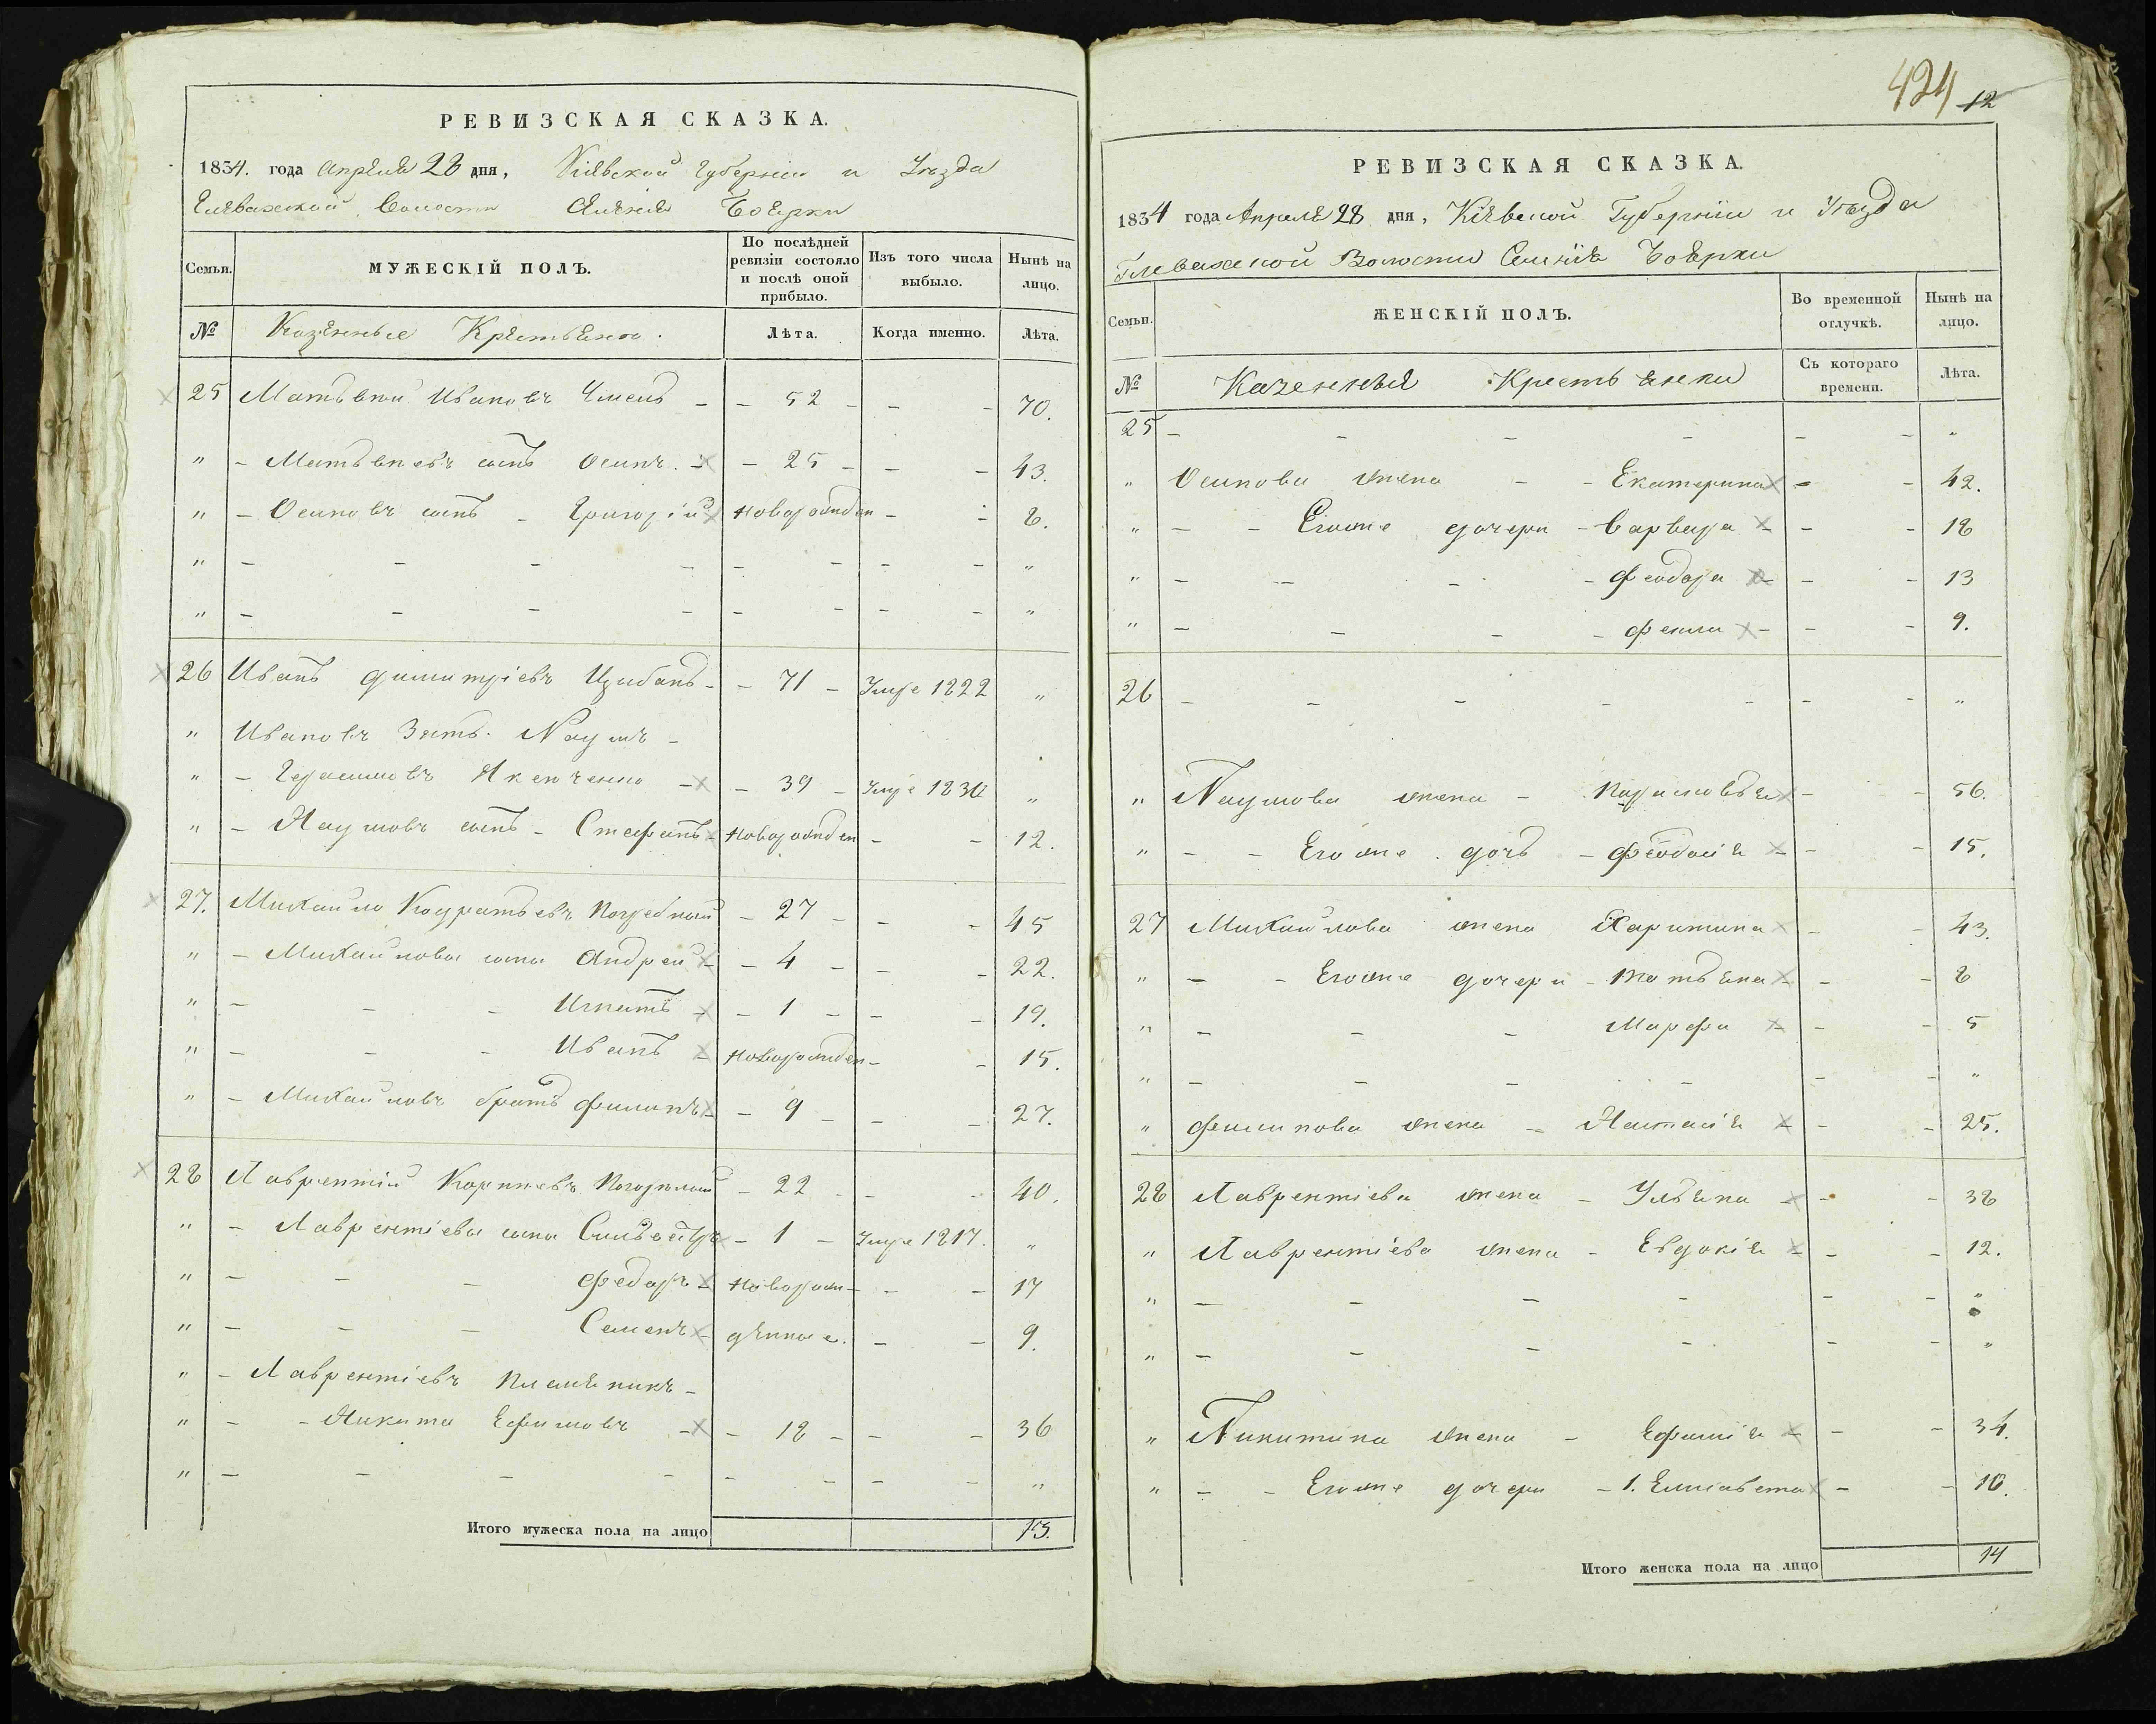 РЕВИЗСКАЯ СКАЗКА.
1834. года Апреля 28 дня, Кіевской Губерніи и Уезда
Глевахской Волости Селенія Боярки
Семьи. МУЖЕСКІЙ ПОЛЪ. По послѣдней ревизіи состояло и послѣ оной прибыло. Изъ того числа выбыло. Нынѣ на лицо.
№ Казенные Крестьяне. Лѣта. Когда именно. Лѣта.
25 Матвей Ивановъ - - 52 - - - 70.
" - Матвеевъ сынъ Осипъ. - - 25 - - - 43.
" - Осиповъ сынъ - Григорій новорожден - - 8.
" - - - - - - - - "
" - - - - - - - - "
26 Иванъ Димитріевъ Цибань - - 71 - Умре 1822 "
" Ивановъ Зять. Наумъ -
" - Герасимовъ - - 39 - Умре 1830 "
" - Наумовъ сынъ - Стефанъ - новорожден - - 12.
27. Михайло Кодратьевъ Погребный - 27 - - - 45
" - Михайловы сыны Андрей - - 4 - - - 22.
" - - - Игнатъ - - 1 - - - 19.
" - - - Иванъ - новорожден - - 15.
" - Михайловъ братъ Филипъ - - 9 - - - 27.
28 Лаврентій Корнеевъ - 22 - - - 40.
" - Лаврентіевы сыны Сильвестръ - 1 - Умре 1817. "
" - - - Федоръ - новорож- - - 17
" - - - Семенъ - дѣнные. - - 9.
" - Лаврентіевъ племяникъ -
" - - Никита Ефимовъ - - 18 - - - 36
" - - - - - - - - "
Итого мужеска пола на лицо 15.
424 12
РЕВИЗСКАЯ СКАЗКА.
1834 года Апреля 28 дня, Кіевской Губерніи и Уезда
Глевахской Волости Селенія Боярки
Семьи. ЖЕНСКІЙ ПОЛЪ. Во временной отлучкѣ. Нынѣ на лицо.
№ Казенныя Крестьянки Съ котораго времени. Лѣта.
25 - - - - - - "
" Осипова жена - - Екатерина - - 42.
" - - Егоже дочери - Варвара - - - 18
" - - - - Феодора - - - 13
" - - - - Фекла - - - 9.
26 - - - - - - - "
" Наумова жена - Парасковья - - 56.
" - - Егоже дочь - Феодосія - - - 15.
27 Михайлова жена Харитина - - 43.
" - - Егоже дочери - Татьяна - - - 8
" - - - Марфа - - - 5
" - - - - - - "
" Филипова жена - Настасія - - - 25.
28 Лаврентіева жена - Ульяна - - - 38
" Лаврентіева жена - Евдокія - - - 12.
" - - - - - - "
" - - - - - - "
" Никитина жена - Ефимія - - - 34.
" - - Егоже дочери - 1. Елисавета - - 10.
Итого женска пола на лицо 14